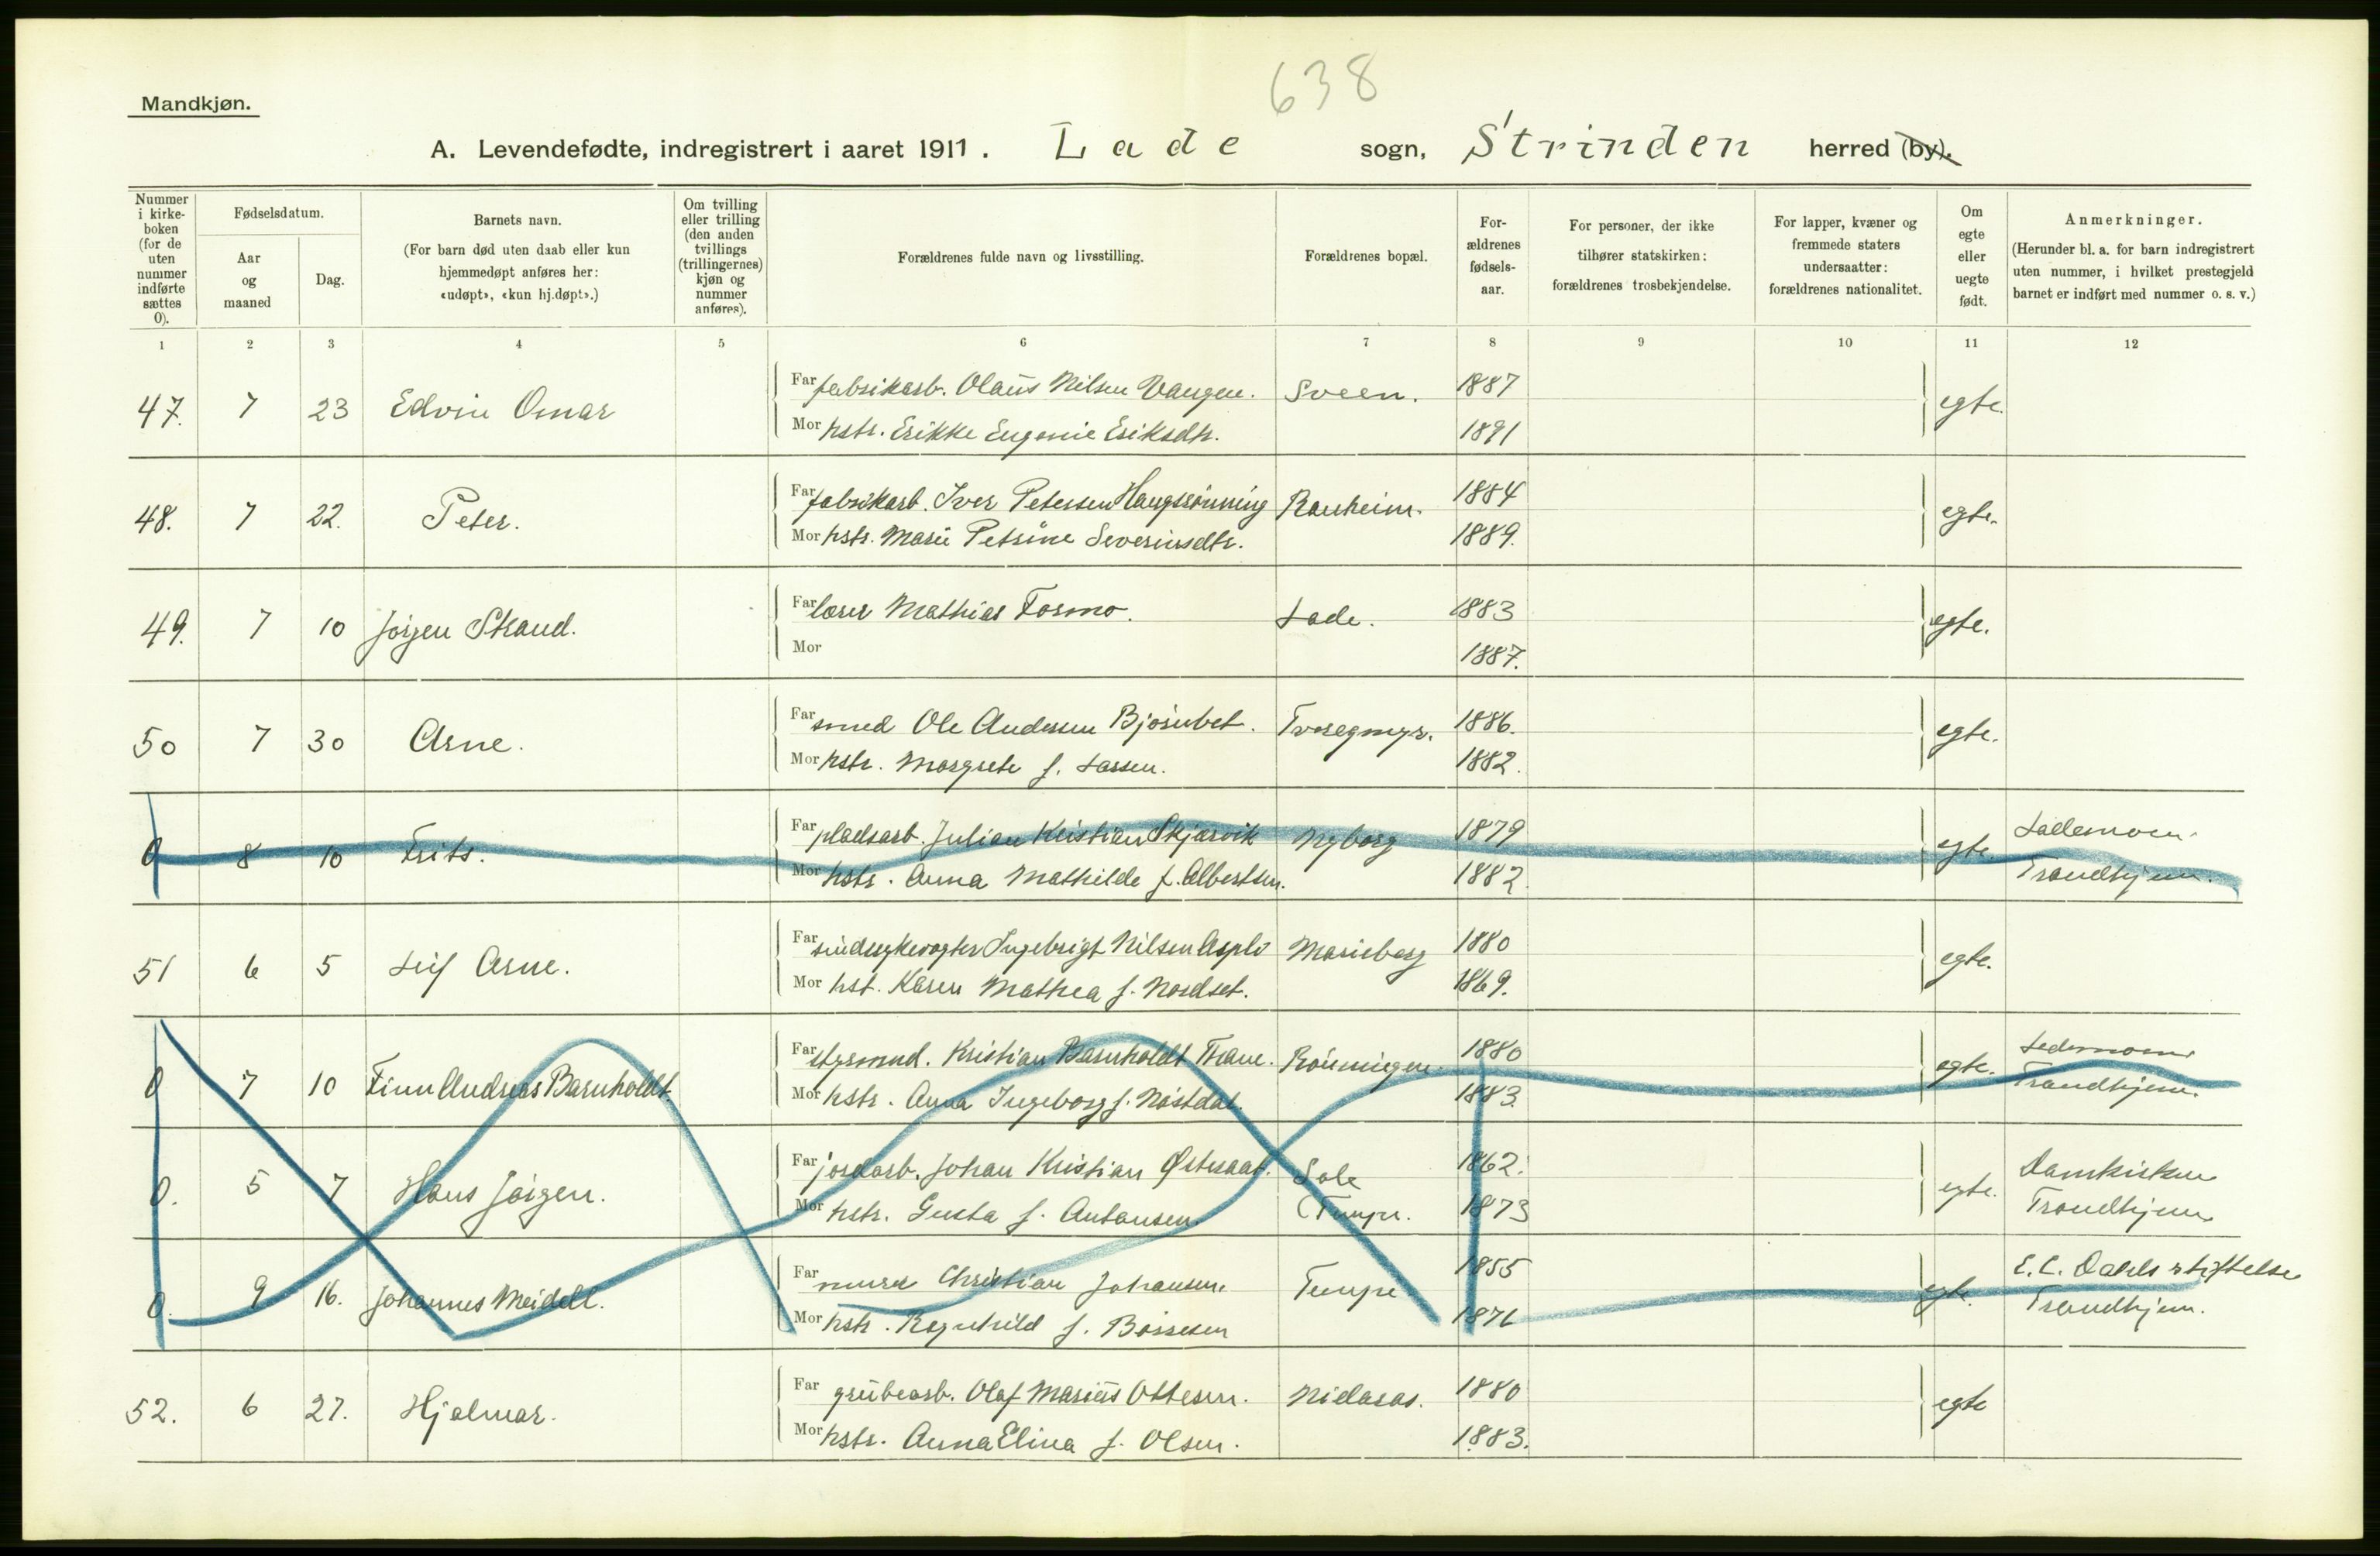 638
Mandkjøn.
A. Levendefødte, indregistrert i aaret 1911. Lade sogn, Strinden herred (by).
Nummer i kirke-boken (for de uten nummer indførte sættes 0).
Fødselsdatum.
Aar og maaned
Dag.
Barnets navn.
(For barn død uten daab eller kun hjemmedøpt anføres her: «udøpt», «kun hj.døpt».)
Om tvilling eller trilling (den anden tvillings (trillingernes) kjøn og nummer anføres).
Forældrenes fulde navn og livsstilling.
Forældrenes bopæl.
For-ældrenes fødsels-aar.
For personer, der ikke tilhører statskirken: forældrenes trosbekjendelse.
For lapper, kvæner og fremmede staters undersaatter: forældrenes nationalitet.
Om egte eller uegte født.
Anmerkninger.
(Herunder bl. a. for barn indregistrert uten nummer, i hvilket prestegjeld barnet er indført med nummer o. s. v.)
1 2 3 4 5 6 7 8 9 10 11 12
47. 7 23 Edvin Omar Far fabrikarb. Olaus Nilsen Vangen. Sveen. 1887 egte.
Mor hstr. Erikke Eugenie Eriksdtr. 1891
48. 7 22. Peter. Far fabrikarb. Iver Petersen Haugsrønning Ranheim. 1884 egte.
Mor hstr. Marie Petrine Severinsdtr. 1889.
49. 7 10 Jørgen Skaud. Far lærer Mathias Formo. Lade. 1883 egte.
Mor 1887.
50 7 30 Arne. Far smed Ole Andersen Bjørnbet. 1886. egte.
Mor hstr. Margrete f. Larsen. 1882.
0 8 10 Frits. Far pladsarb. Julian Kristian Skjærvik Nyborg 1879 egte Lademoen
Mor hstr. Anna Mathilde f. Albertsen. 1882. Trondhjem.
51 6 5 Leif Arne. Far sindsykevogter Ingebrigt Nilsen Asplø Marieborg 1880 egte.
Mor hst. Karen Mathea f. Nordset. 1869.
0 7 10 Finn Andreas Barnholdt. Far styrmnd. Kristian Barnholdt Thane. Rønningen 1880 egte. Lademoen
Mor hstr. Anna Ingeborg f. Nøstdal. 1883. Trondhjem.
0. 5 7 Hans Jørgen. Far jordarb. Johan Kristian Østeraas. 1862. egte. Domkirken
Mor hstr. Gusta f. Antonsen. (Tempe. 1873 Trondhjem.
0. 9 16. Johannes Meidell. Far murer Christian Johansen. Tempe 1855 egte. E. C. Dahls stiftelse
Mor hstr. Ragnhild f. Børresen 1871 Trondhjem.
52. 6 27. Hjalmar. Far grubearb. Olaf Marius Ottesen. Nidaros. 1880 egte
Mor hstr. Anna Elina f. Olsen. 1883.